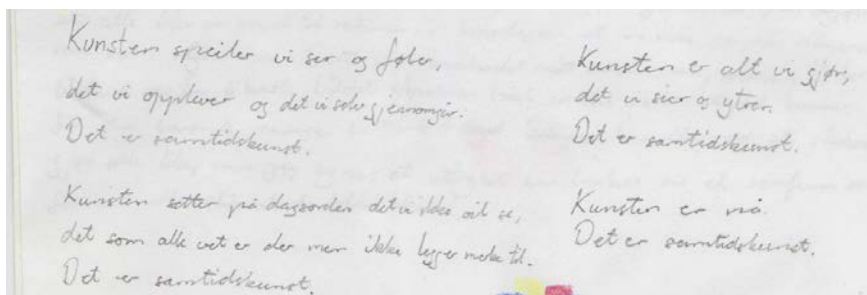 Kunsten speiler vi ser og føler,
det vi opplever og det vi selv gjennomgår.
Det er samtidskunst.
Kunsten setter på dagsorden det vi ikke vil se,
det som alle vet er der men ikke legger merke til.
Det er samtidskunst.
Kunsten er alt vi gjør,
det vi sier og ytrer.
Det er samtidskunst.
Kunsten er nå.
Det er samtidskunst.